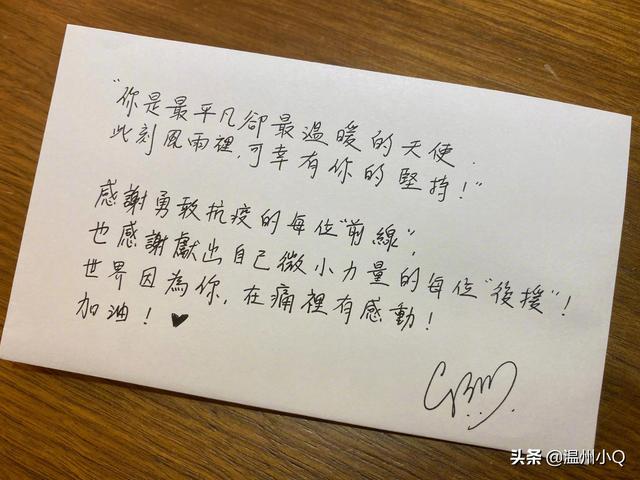 "你是最平凡卻最溫暖的天使.
此刻風雨裡,可幸有你的堅持!"
感謝勇敢抗疫的每位"前線",
也感謝獻出自己微小力量的每位"後援"!
世界因為你,在痛裡有感動!
加油!♥
头条 @温州小Q